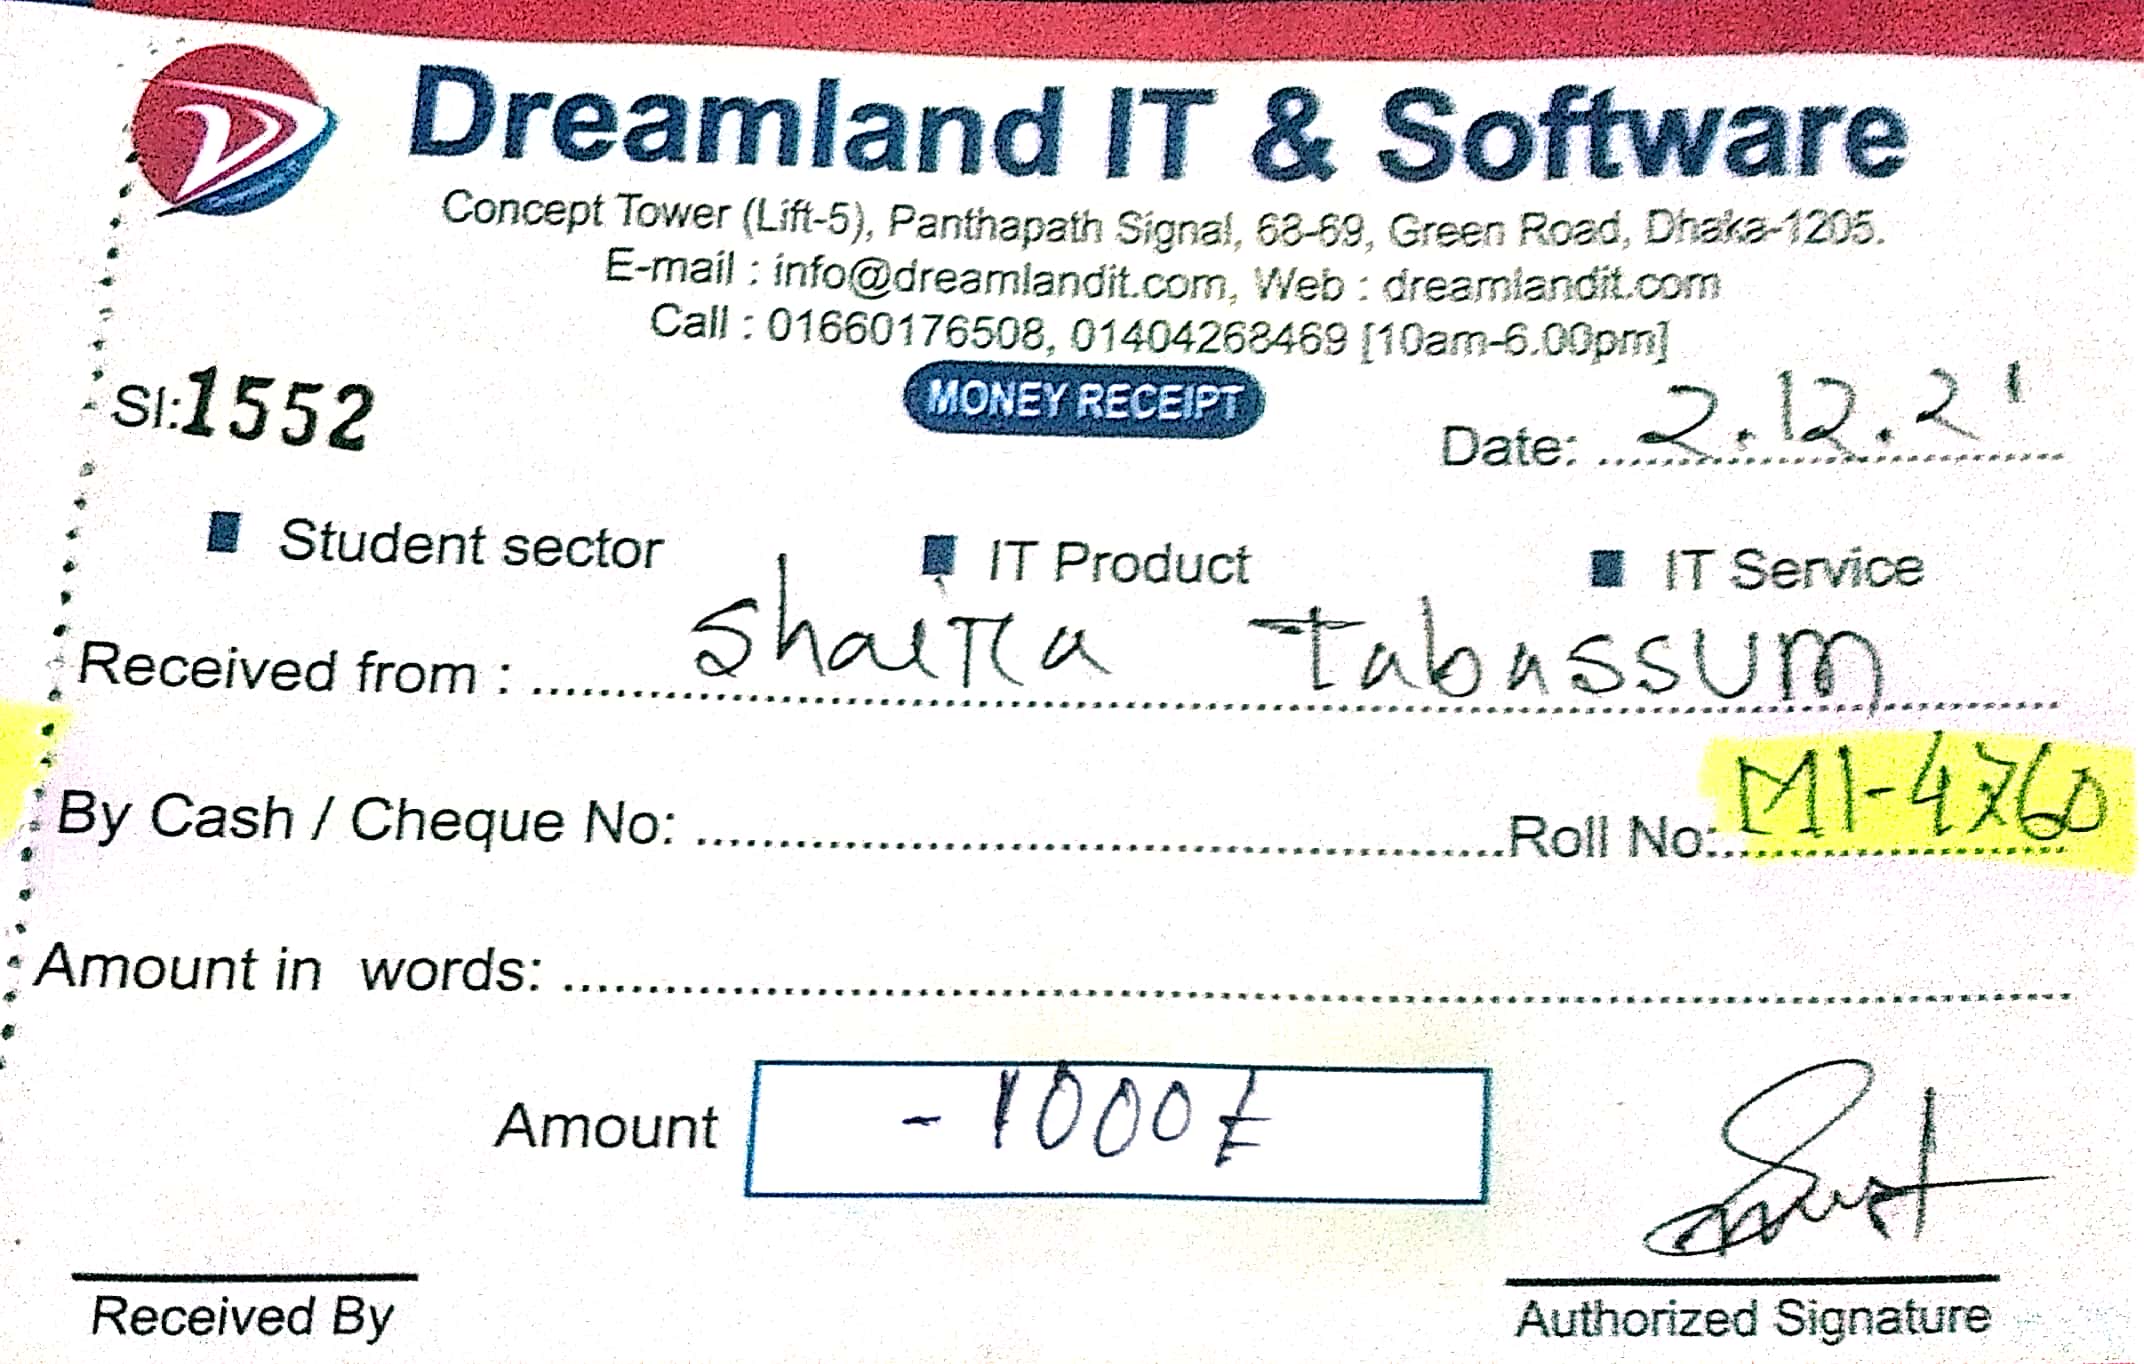 Dreamland IT & Software
Concept Tower (Lift-5), Panthapath Signal, 68-69, Green Road, Dhaka-1205.
E-mail : info@dreamlandit.com, Web : dreamlandit.com
Call : 01660176508, 01404268469 [10am-6.00pm]
MONEY RECEIPT
Sl:1552 Date: 2.12.21
Student sector IT Product IT Service
Received from : Shaira Tabassum
By Cash / Cheque No: Roll No: M1-4760
Amount in words:
Amount -1000৳
Received By Authorized Signature